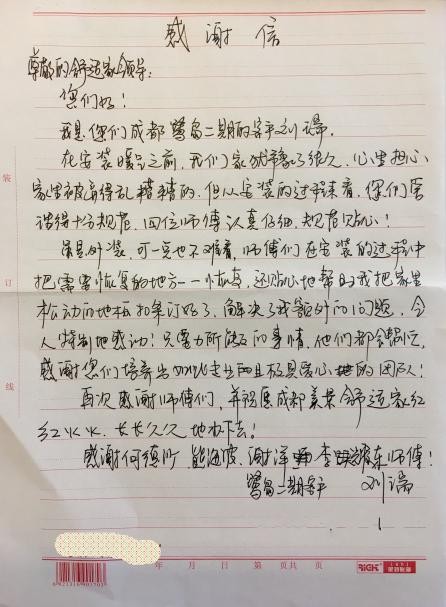 感谢信
尊敬的舒适家领导:
您们好!
我是您们成都鹭岛二期的客户刘瑞。
在安装暖气之前,我们家犹豫了很久,心里担心
家里被弄得乱糟糟的,但从安装的过程来看,你们
得十分规范,四位师傅认真仔细,规范贴心!
虽是外装,可一点也不难看,师傅们在安装的过程中
把需要恢复的地方一一恢复,还贴心地帮我把家里
松动的地板扣条订好了,解决了我额外的问题,令
人特别地感动!只要力所能及的事情,他们都会帮忙,
感谢您们培养出如此专业而且极具爱心的团队!
再次感谢师傅们,并祝愿成都美景舒适家红
红火火,长长久久地办下去!
感谢何德 熊 谢泽 李 东师傅!
鹭岛二期客户 刘瑞
1
装
订
线
年 月 日 第 页 共 页
6921316901703
RICK